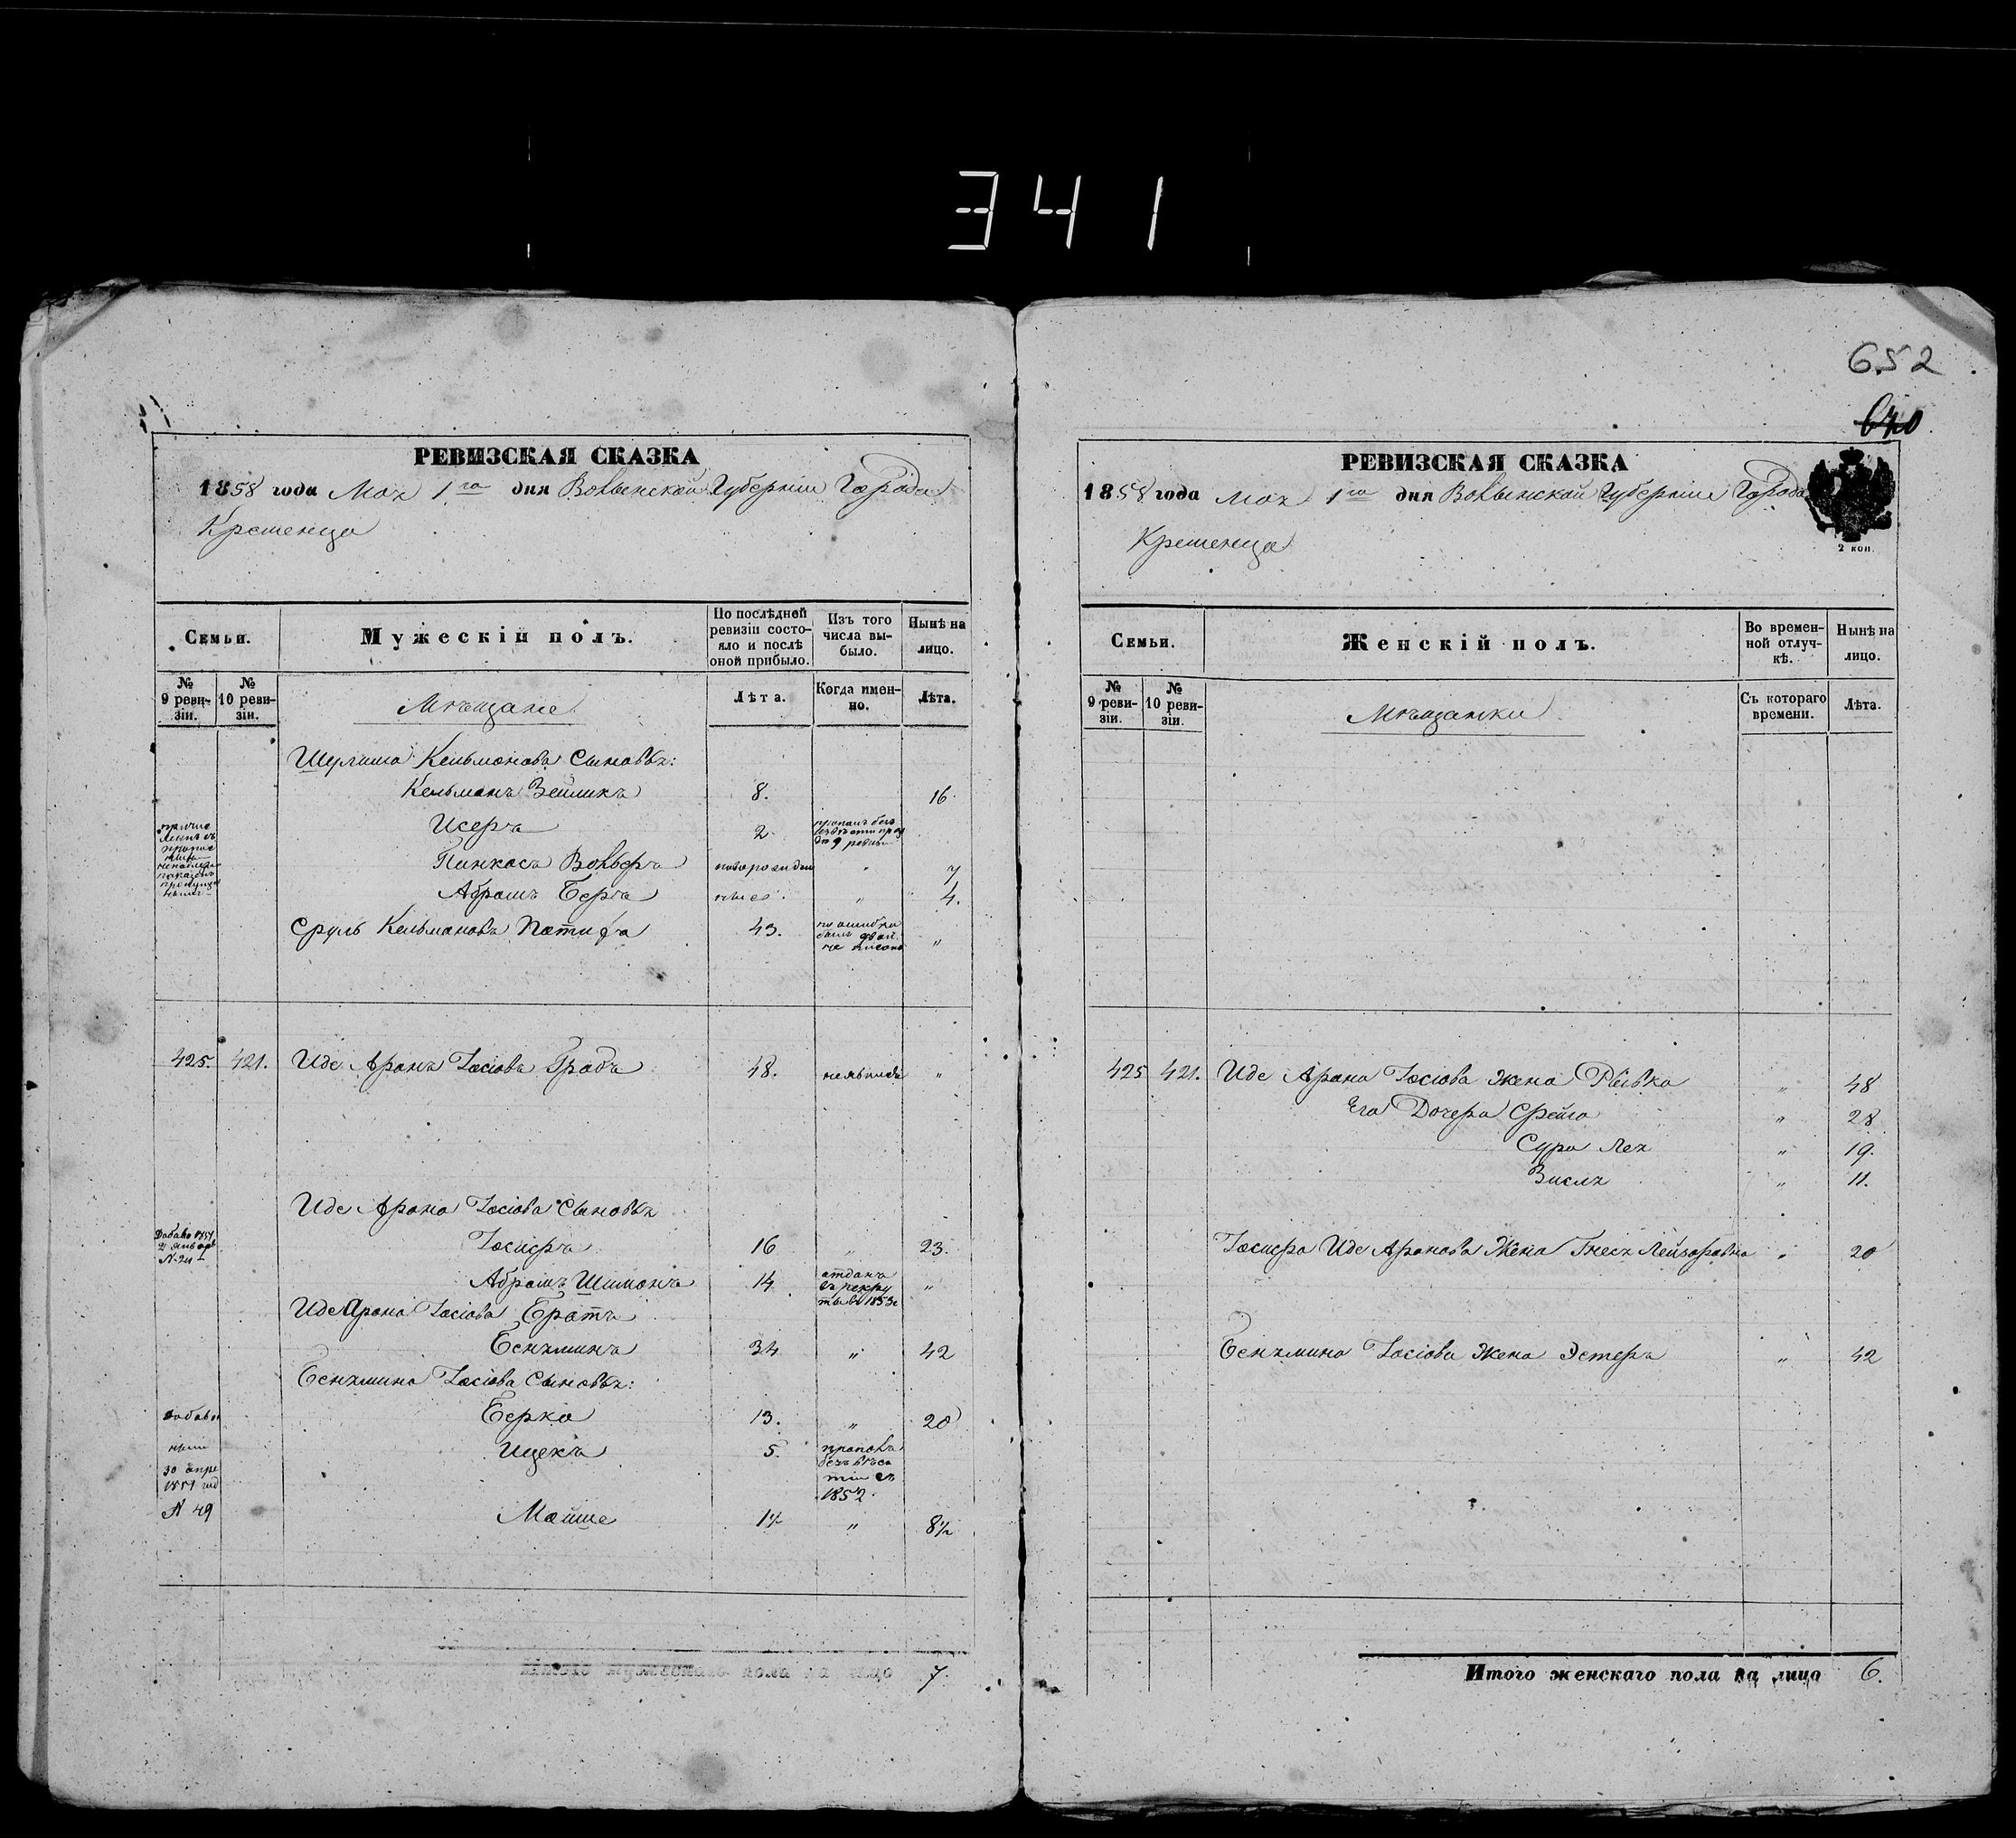 341
652
670
РЕВИЗСКАЯ СКАЗКА
1858 года Мая 1го дня Волынской Губерніи Города
Кременца
Семьи.
Мужескій полъ.
По послѣдней ревизіи состояло и послѣ оной прибыло.
Изъ того числа выбыло.
Нынѣ на лицо.
№ 9 ревизіи.
№ 10 ревизіи.
Мѣщане
Лѣта.
Когда именно.
Лѣта.
Шулима Кельманова Сыновья:
Кельманъ Зейликъ 8. 16
Исеръ 2
Пинкасъ Вольфъ новорожден " 7
Абрамъ Беръ " 4.
Сруль Кельмановъ 43. по ошибки "
425. 421. Иде Аронъ Іосіовъ Градъ 48. "
Иде Арона Іосіова Сыновья
Іосифъ 16 " 23.
Абрамъ Шимонъ 14 отданъ въ рекруты въ 1853г "
Иде Арона Іосіова Братъ
Бенямин 34 " 42
Бенямина Іосіова Сыновья:
Берко 13. " 20
Ицекъ 5. 1852.
N 49
Мойше 1½ " 8½
Итого мужескаго пола на лицо 7.
РЕВИЗСКАЯ СКАЗКА
1858 года Мая 1го дня Волынской Губерніи Города
Кременца
2 коп.
Семьи.
Женскій полъ.
Во временной отлучкѣ.
Нынѣ на лицо.
№ 9 ревизіи.
№ 10 ревизіи.
Мѣщанки
Съ котораго времени.
Лѣта.
425 421. Иде Арона Іосіова Жена Рывка " 48
Его Дочера Фрейга " 28
Сура Лея " 19.
" 11.
Іосифа Иде Аронова Жена Гнеся Лейзоровна " 20
Бенямина Іосіова Жена Эстеръ " 42
Итого женскаго пола на лицо 6.